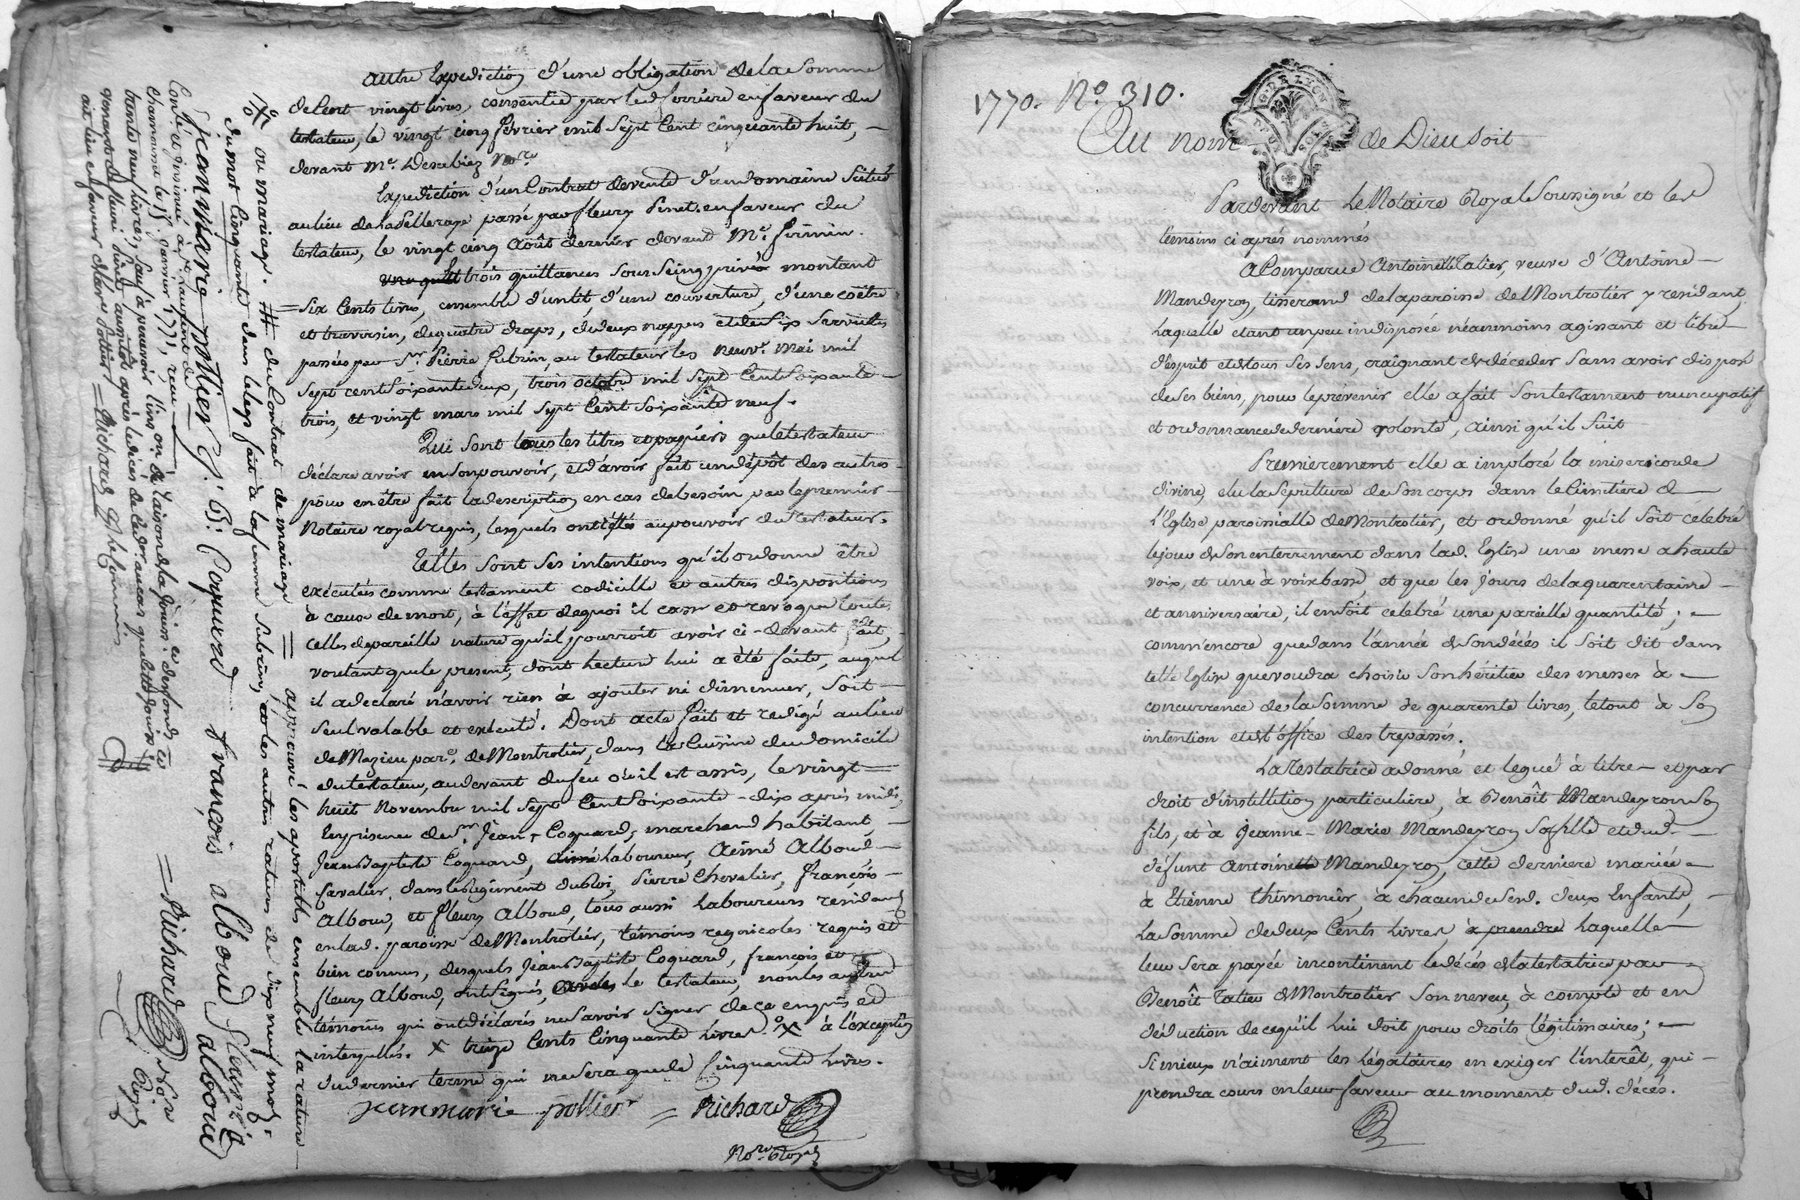 autre Expedition d'une obligation de la Somme
de Cent vingt livres, consentie par led. ferriere en faveur du
testateur, le vingt cinq février mil sept Cent Cinquante huit, —
devant Me. Descabiez Nore
Expedition d'un Contrat de vente d'un domaine Scitué
au lieu de la Sellerage passé par fleury Pinet en faveur du
testateur, le vingt cinq Août dernier devant Me. firmin.
trois quittances Sous Seing privé montant
Six Cents livres, ensemble d'un lit, d'une couverture, d'une coëtre
et traversin, de quatre draps, de deux nappes et de Six Serviettes
passées par Sr. Pierre Subrin, au testateur les neuve. Mai mil
Sept cent Soixante deux, trois octobre mil Sept Cent Soixante
trois, et vingt mars mil Sept Cent Soixante neuf.
Qui Sont tous les titres et papiers que le testateur
déclare avoir en Son pouvoir, et d'avoir fait un dépôt des autres
pour en être fait la description en cas de besoin par le premier
Notaire royal requis, lesquels ont étés au pouvoir du testateur.
Telles Sont Ses intentions qu'il ordonne être
exécutées comme testament codicille et autres dispositions
à cause de mort, à l'effet de quoi il casse et revoque toutes
celles de pareille nature qu'il pourroit avoir ci-devant fait,
voulant que le present, dont lecture lui a été faite, auquel
il a declaré n'avoir rien à ajouter ni diminuer, Soit
Seul valable et exécuté. Dont acte fait et redigé au lieu
de Mazieu par. de Montrotier, dans la Cuisine du domicile
du testateur, au devant du feu où il est assis, le vingt
huit Novembre mil Sept Cent Soixante-dix après midi,
En présence de Sr. Jean Coquard, marchand habitant
Jean Baptiste Coquard, Laboureur, Aimé Alboud
Cavalier dans le Régiment du Roi, Pierre Chevalier, François
Alboud, et fleury Alboud, tous aussi Laboureurs residants
en lad. paroisse de Montrotier, témoins regnicoles requis et
bien connus, desquels Jean Baptiste Coquard, françois et
fleury Alboud, ont Signés, le testateur, non les autres
témoins qui ont déclarés ne Savoir Signer de ce enquis et
interpellés. X treize Cents Cinquante livres. X à l'exception
du dernier terme qui ne Sera que de Cinquante livres.
Jean marie pollier = Richard
Nore. Royal
ou mariage. du Contrat de mariage = approuvé les apostilles ensemble la rature
du mot Cinquante dans le legs fait à la femme Subrin, et les autres ratures de dix neuf mots.
jean marie pollier J. B. Coquerd françois alboud fleurie alboud
= Richard Nore Royal
Conté et insinué à
Chamousset le 15 janvier 1771, reçu
trente neuf livres, Sauf à
= Richard
1770. No. 310.
Au nom de Dieu Soit
Pardevant Le Notaire Royal Soussigné et les
témoins ci après nommés
A Comparue Antoinette Tatier, veuve d'Antoine
Mandeyron, tisserand de la paroisse de Montrotier y residant,
Laquelle étant un peu indisposée néanmoins agissant et libre
d'esprit et de tous Ses Sens, craignant de décéder Sans avoir disposé
de Ses biens, pour le prévenir elle a fait Son testament nuncupatif
et ordonnance de derniere volonté, ainsi qu'il Suit
Premierement elle a imploré la misericorde
divine, élu la Sepulture de Son corps dans le Cimitière de
l'Eglise paroissialle de Montrotier, et ordonné qu'il Soit celebré
le jour de Son enterrement dans lad. Eglise une messe a haute
voix, et une à voix basse, et que les jours de la quarentaine
et anniversaire, il en Soit celebré une pareille quantité;
comm'encore que dans l'année de Son décés il Soit dit dans
telle Eglise que voudra choisir Son héritier des messes à
concurrence de la Somme de quarente livres, le tout à Son
intention et à l'office des trepassés.
La Testatrice a donné et legué à titre et par
droit d'institution particuliere, à Benoît Mandeyron Son
fils, et à Jeanne-Marie Mandeyron Sa fille et dud.
défunt Antoine Mandeyron, cette derniere mariée
à Etienne thimonier, à chacun de Sesd. deux Enfants,
La Somme de deux Cents livres, à prendre Laquelle
leur Sera payée incontinent le décés de la testatrice par
Benoît Tatier de Montrotier Son neveu, à compte et en
déduction de ce qu'il lui doit pour droits légitimaires;
Si mieux n'aiment les légataires en exiger l'interêt, qui
prendra cours en leur faveur au moment dud. décés.